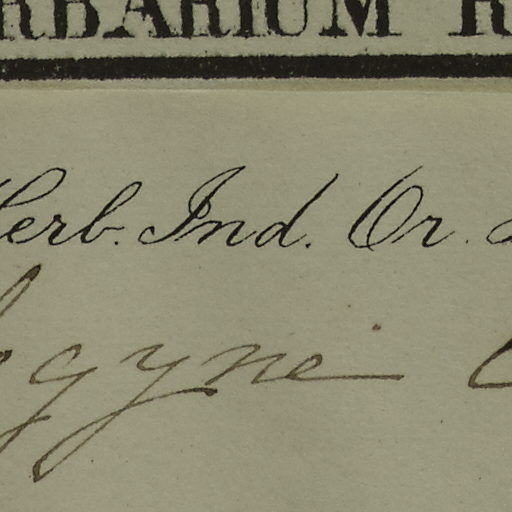 RBARIUM R
Herb. Ind. Or.
ogyne